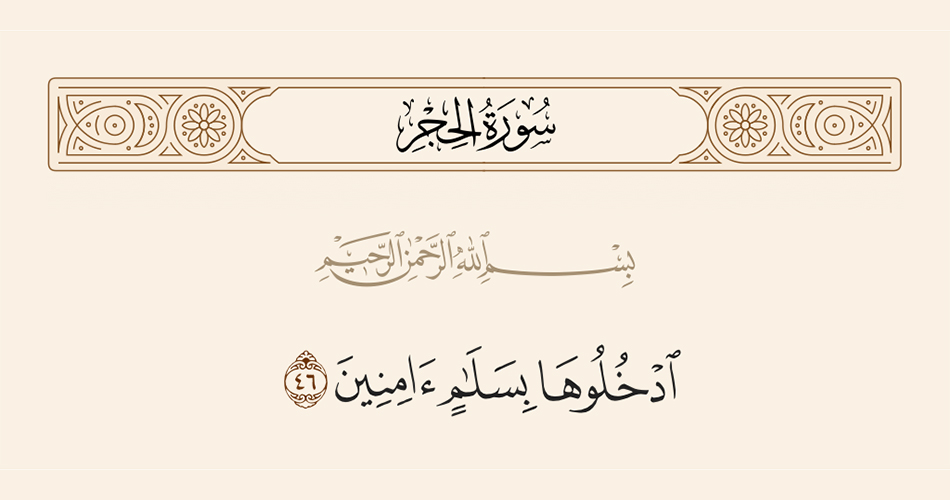 سُورَةُ الحِجْرِ
بِسْمِ اللَّهِ الرَّحْمَٰنِ الرَّحِيمِ
ٱدْخُلُوهَا بِسَلَٰمٍ ءَامِنِينَ ٤٦